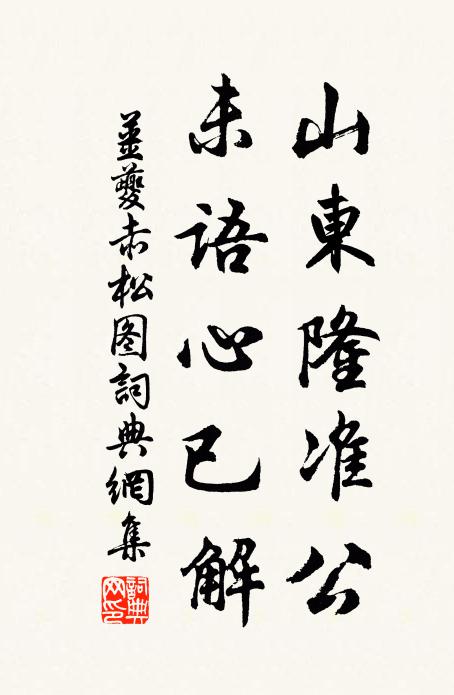 山東隆准公
未語心已解
姜夔赤松图詞典網集
詞典网印